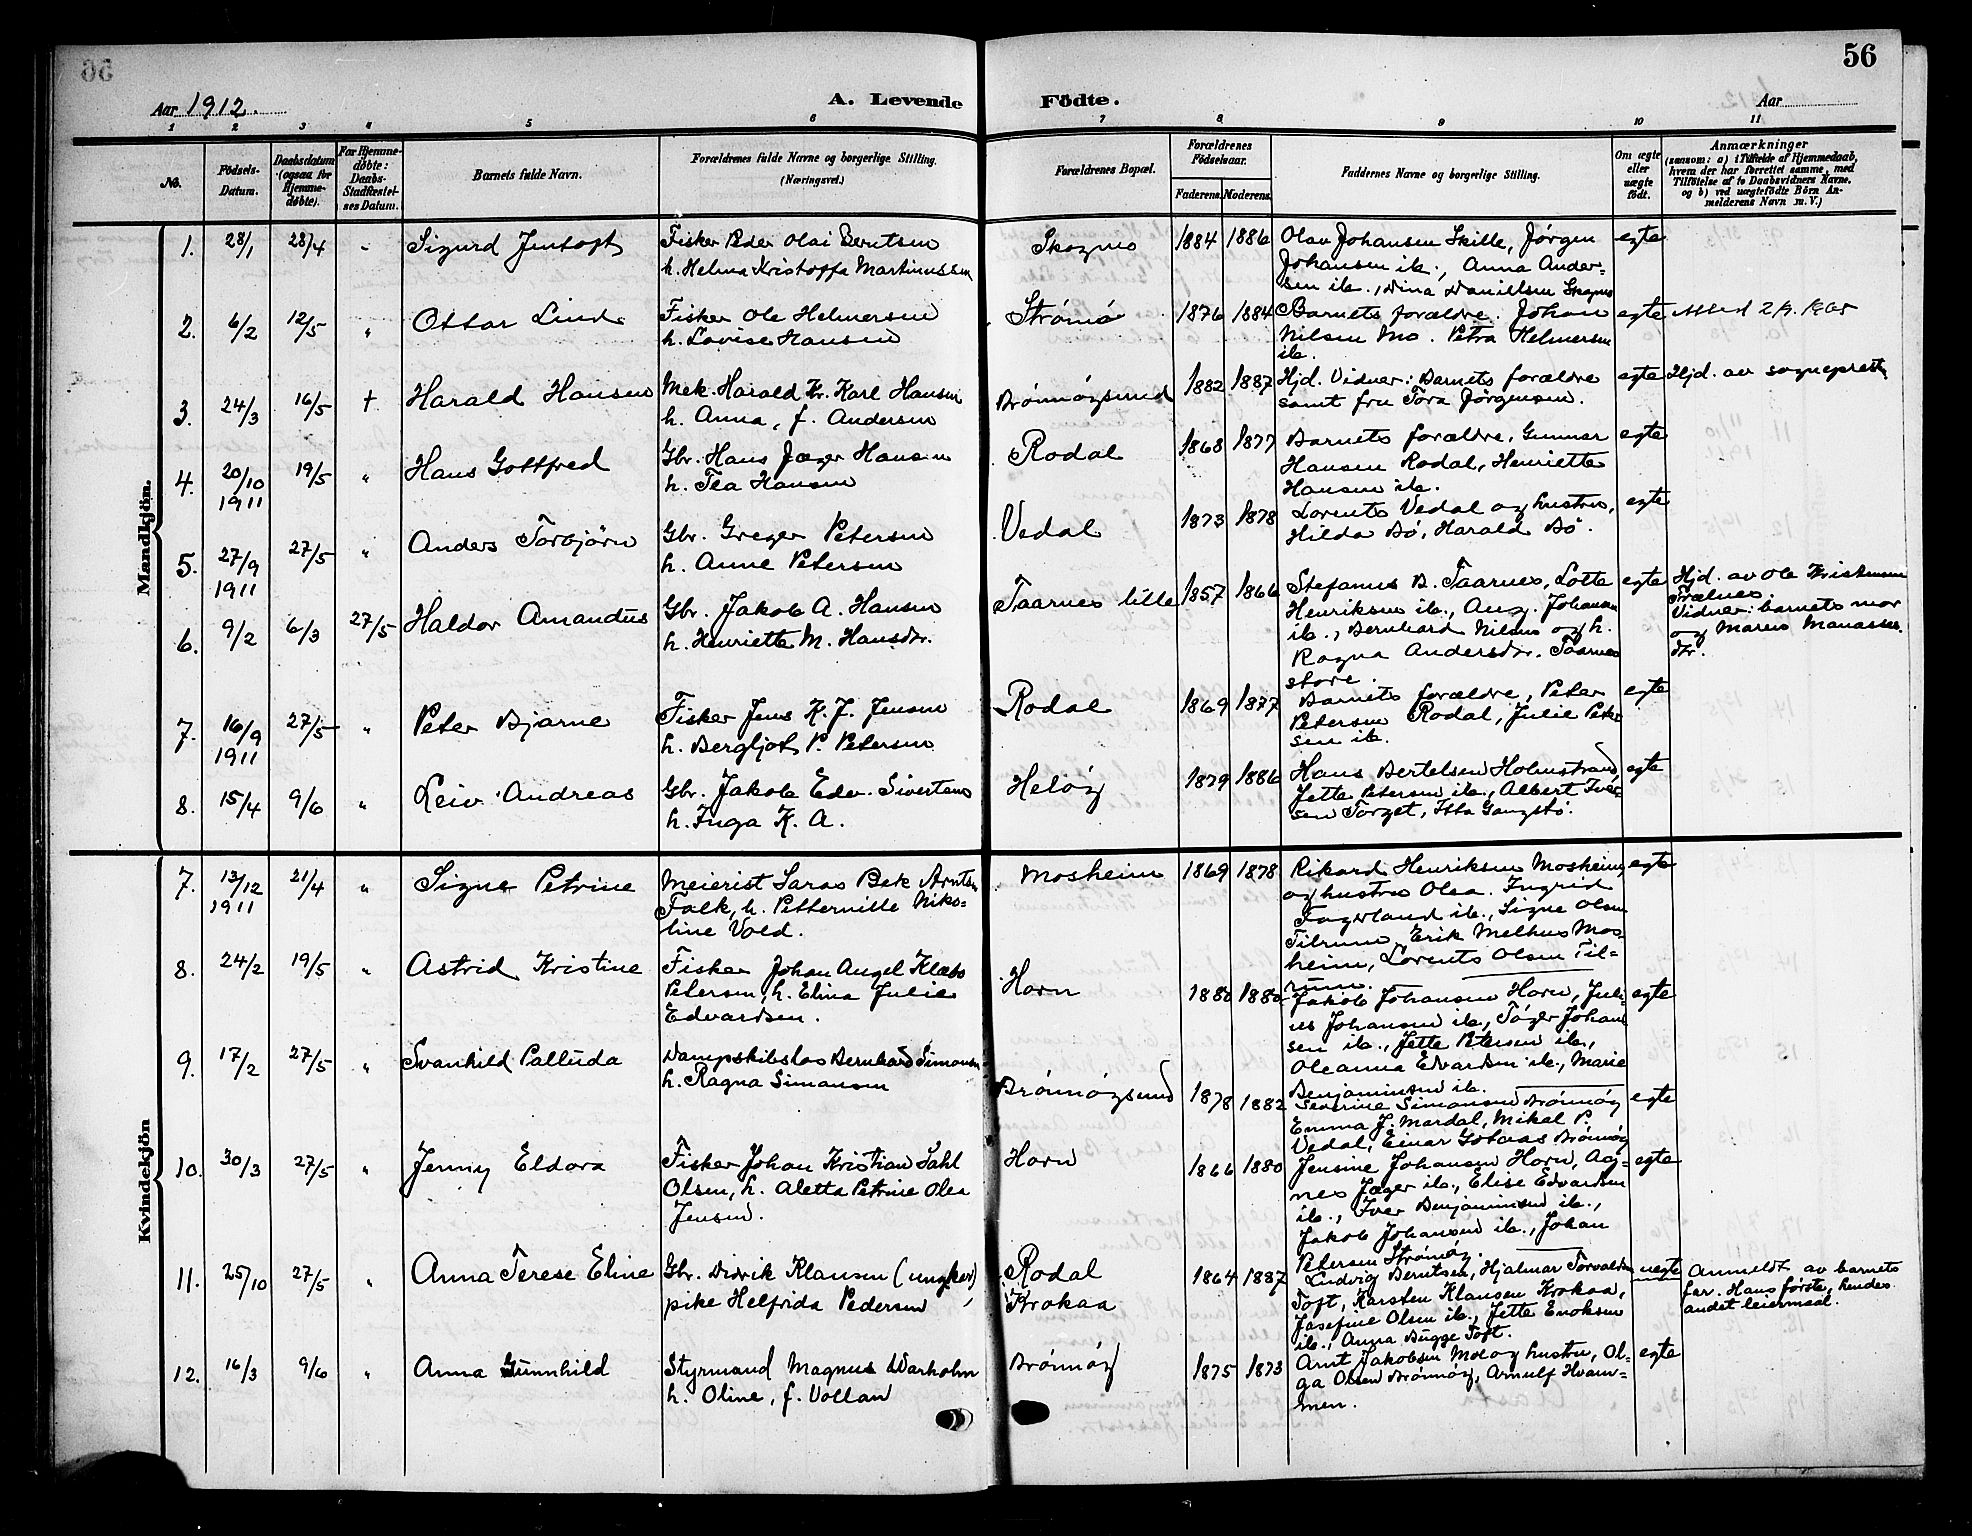 56
Aar 1912.
A. Levende Födte.
Aar
1 2 3 4 5 6 7 8 9 10 11
No.
Födsels-Datum.
Daabsdatum (ogsaa for Hjemmedøbte).
For Hjemmedøbte: Daabs-Stadfæstelses Datum.
Barnets fulde Navn.
Forældrenes fulde Navne og borgerlige Stilling.
(Næringsvei.)
Forældrenes Bopæl.
Forældrenes Födselsaar.
Faderens. Moderens.
Faddernes Navne og borgerlige Stilling.
Om ægte eller uægte födt.
Anmærkninger
(saasom: a) i Tilfælde af Hjemmedaab, hvem der har forrettet samme, med Tilföielse af to Daabsvidners Navne, og b) ved uægtefödte Börn Anmelderens Navn m. V.)
Mandkjön.
1. 28/1 28/4 " Sigurd Jentoft
Fisker Peder Olai Berntsen
h. Helma Kristoffa Martinussen
Skognes 1884 1886
Olav Johansen Skille, Jørgen
Johansen ib., Anna Ander-
sen ib., Dina Danielsen Skognes
egte
2. 6/2 12/5 " Ottar Lind
Fisker Ole Helmersen
h. Lovise Hansen
Strømø 1876 1884
Barnets forældre. Johan
Nilsen Mo. Petra Helmersen
ib.
egte
3. 24/3 16/5 † Harald Hansen
Mek. Harald Kr. Karl Hansen
h. Anna, f. Andersen
Brönnöysund 1882 1887
Hjd. Vidner: Barnets forældre
samt fru Tora Jørgensen.
egte Hjd. av sogneprest
4. 20/10 1911 19/5 " Hans Gottfred
Gbr. Hans Jæger Hansen
h. Tea Hansen
Rodal 1868 1877
Barnets forældre, Gunnar
Hansen Rodal, Henriette
Hansen ib.
egte
5. 27/9 1911 27/5 " Anders Torbjørn
Gbr. Greger Petersen
h. Anne Petersen
Vedal 1873 1878
Lorents Vedal og hustru,
Hilda Bö, Harald Bö.
egte
6. 9/2 6/3 27/5 Haldor Amandus
Gbr. Jakob A. Hansen
h. Henriette M. Hansdr.
Taarnes lille 1857 1866
Stefanus B. Taarnes, Lotte
Henriksen ib., Aug. Johansen
ib., Bernhard Nilsen og h.
Ragna Andersdr. Taarnes
store.
egte Hjd. av Ole Kristensen
Trælnes.
Vidner: barnets mor
og Maren Manasses-
dtr.
7. 16/9 1911 27/5 " Peter Bjarne
Fisker Jens K. J. Jensen
h. Bergljot P. Petersen
Rodal 1869 1877
Barnets forældre, Peter
Petersen Rodal, Julie Peter
sen ib.
egte
8. 15/4 9/6 " Leiv Andreas
Gbr. Jakob Edv. Sivertsen
h. Inga K. A.
Helöy 1879 1886
Hans Bertelsen Holmstrand
Jette Petersen ib., Albert Iver-
sen Torget,
egte
Kvindekjön
7. 13/12 1911 21/4 " Signe Petrine
Meierist Saras Bek Arntsen
Falk, h. Petternille Niko-
line Vold.
Mosheim 1869 1878
Rikard Henriksen Mosheim
og hustru Olea. Ingrid
Fagerland ib., Signe Olsen
Tilrum, Erik Melhus Mos-
heim, Lorents Olsen Til-
rum.
egte
8. 24/2 19/5 " Astrid Kristine
Fisker Johan Angel Klæbo
Petersen, h. Elina Julie
Edvardsen.
Horn 1880 1880
Jakob Johansen Horn, Juli-
us Johansen ib., Töger Johan
sen ib., Jette Petersen ib.,
Oleanna Edvardsen ib., Marie
Benjaminsen ib.
egte
9. 17/2 27/5 " Svanhild Palluda
Dampskibslos Bernhard Simonsen
h. Ragna Simonsen
Brönnöysund 1878 1882
Severine Simonsen Brönnöy
Emma J. Mardal, Mikal P.
Vedal, Einar Gotaas Brönnöy
egte
10. 30/3 27/5 " Jenny Eldora
Fisker Johan Kristian Dahl
Olsen, h. Aletta Petrine Olea
Jensen.
Horn 1866 1880
Jensine Johansen Horn, Ag-
nes Jæger ib., Elise Edvardsen
ib., Iver Benjaminsen ib.,
Jakob Johansen ib., Johan
Petersen Strömöy.
egte
11. 25/10 27/5 " Anna Terese Eline
Gbr. Didrik Klausen (ungkar)
pike Helfrida Pedersen
Rodal
Krokaa
1864 1887
Ludvig Berntsen, Hjalmar Torvaldsen
Toft, Karsten Klausen Krokaa,
Josefine Olsen ib., Jette Enoksen
ib., Anna Bugge Toft.
uegte Anmeldt av barnets
far. Hans første, hendes
andet leiermaal.
12. 16/3 9/6 " Anna Gunnhild
Styrmand Magnus Warholm
h. Oline, f. Vollan
Brönnöy 1875 1873
Arnt Jakobsen Mo og hustru, Ol-
ga Olsen Brönnöy, Arnulf Hvam-
men.
egte